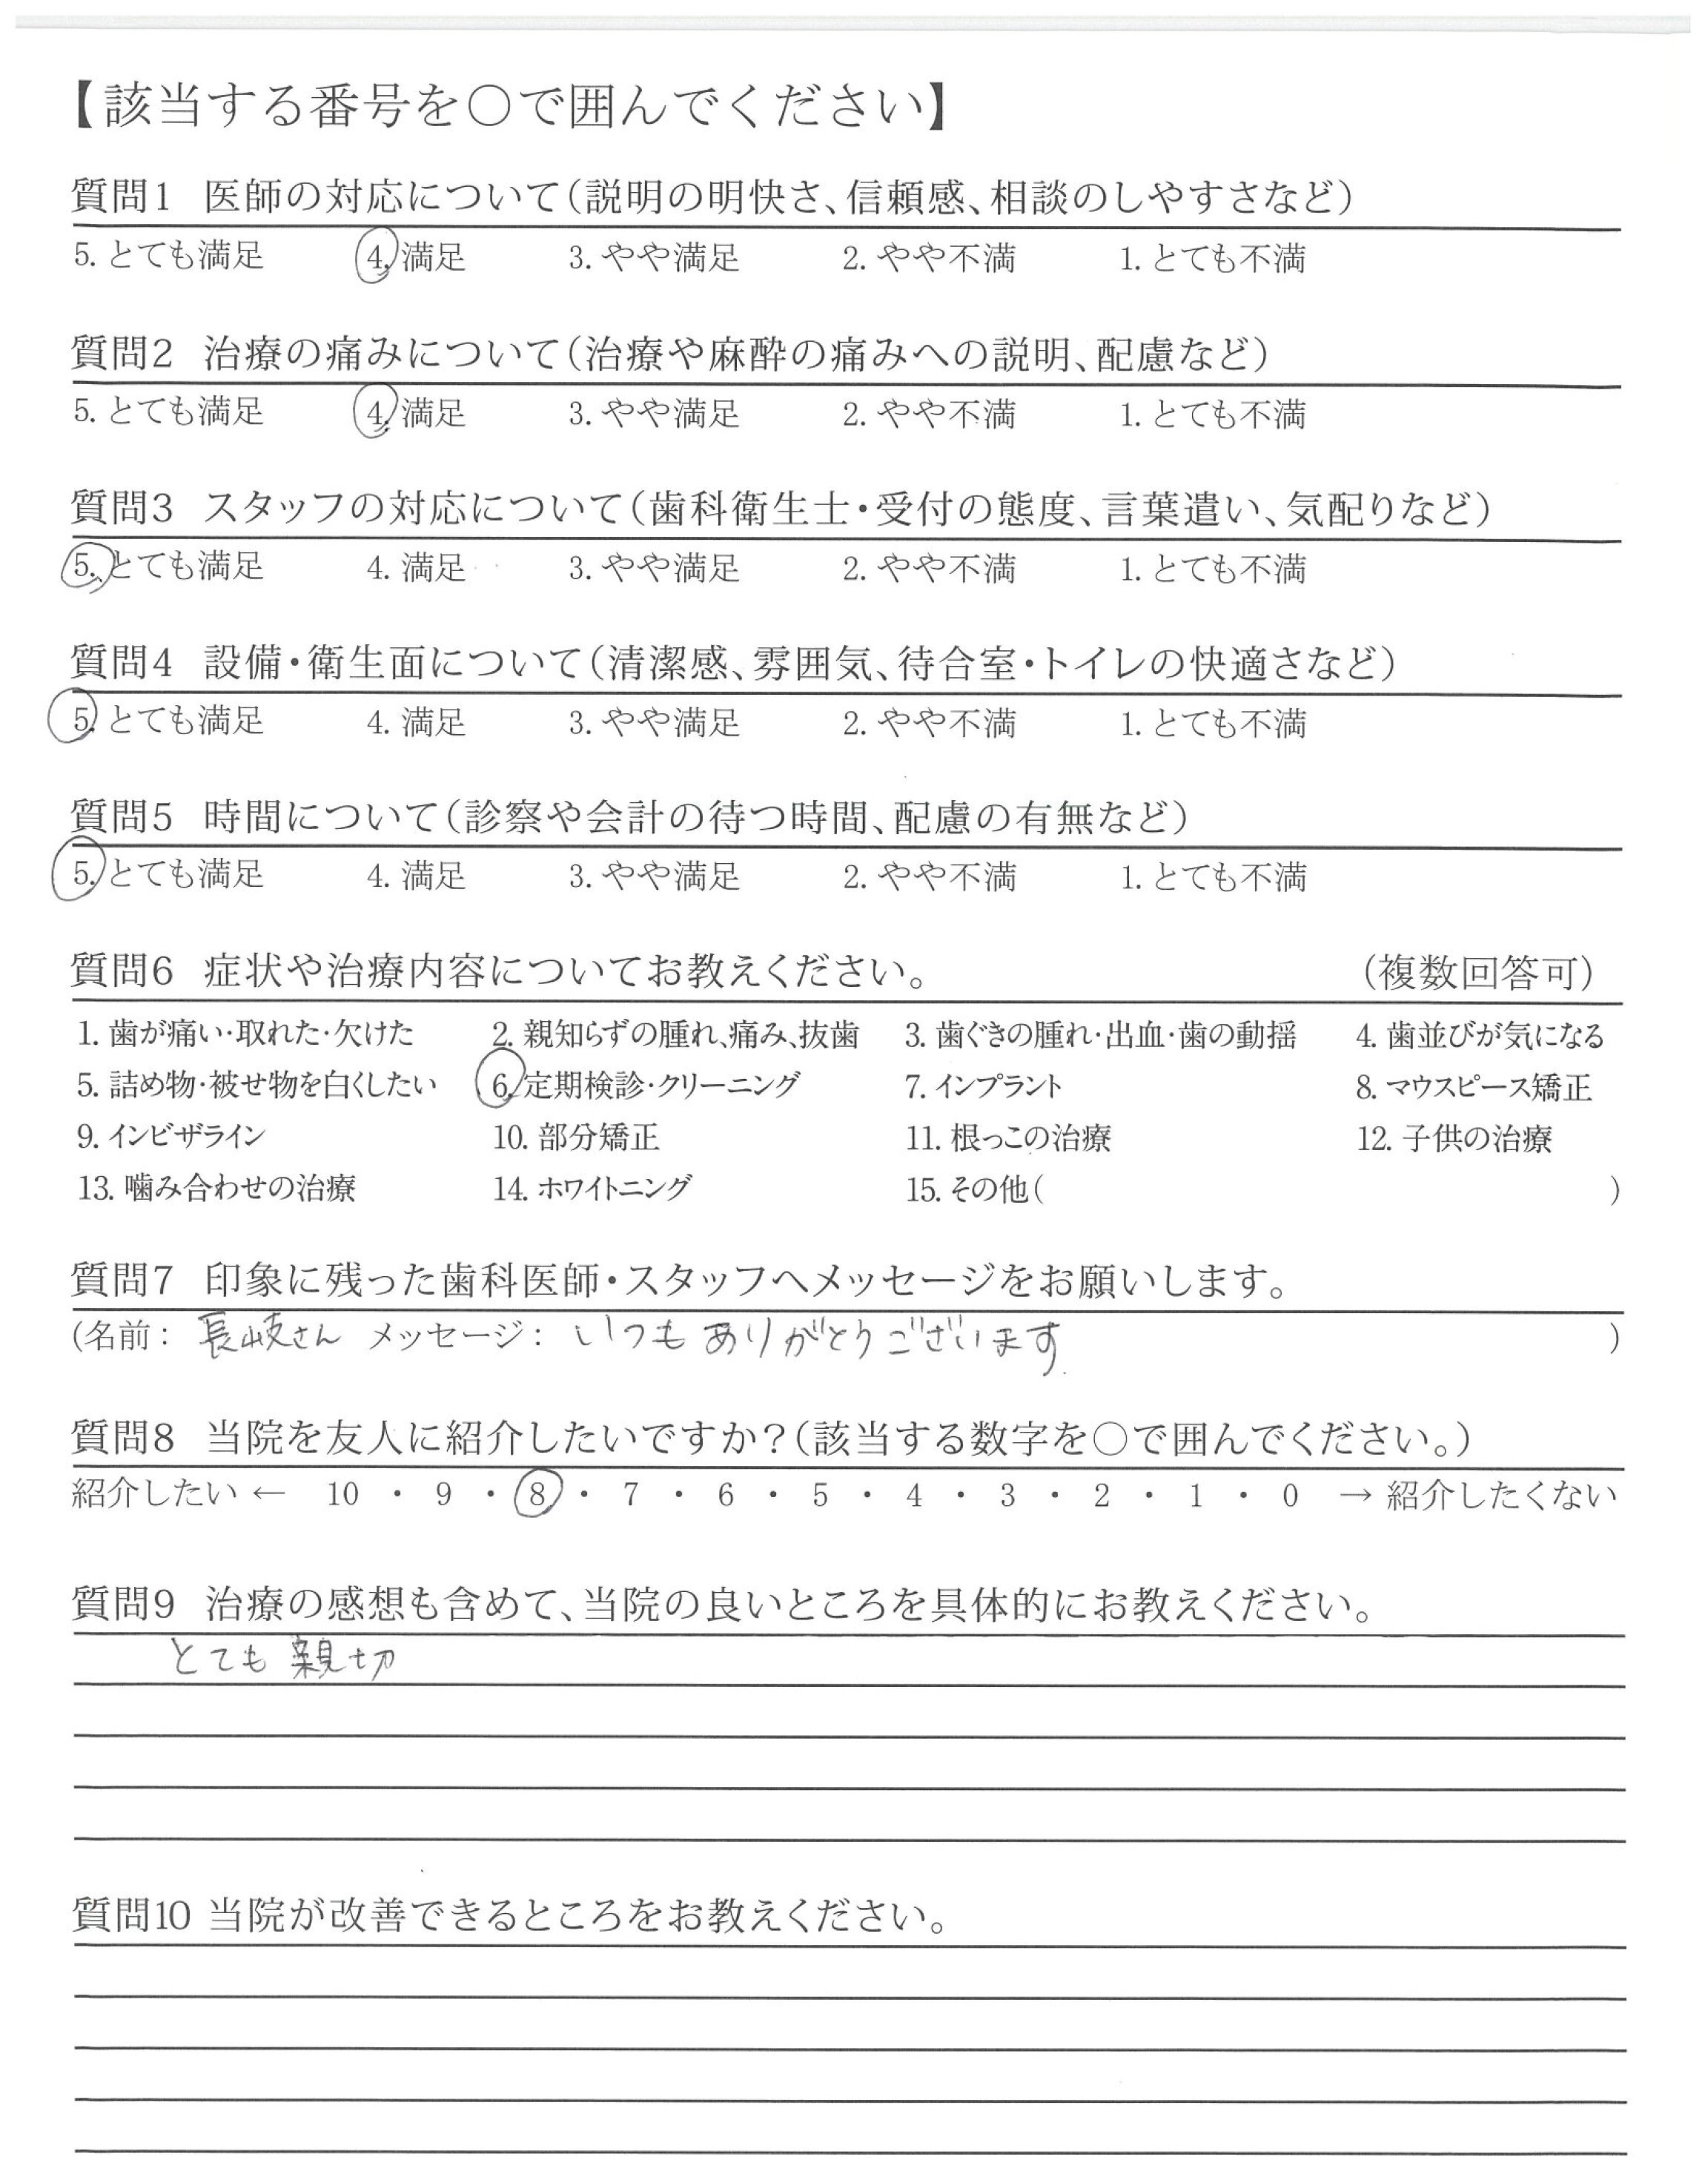 【該当する番号を○で囲んでください】
質問1 医師の対応について(説明の明快さ、信頼感、相談のしやすさなど)
5. とても満足 4. 満足 3. やや満足 2. やや不満 1. とても不満
質問2 治療の痛みについて(治療や麻酔の痛みへの説明、配慮など)
5. とても満足 4. 満足 3. やや満足 2. やや不満 1. とても不満
質問3 スタッフの対応について(歯科衛生士・受付の態度、言葉遣い、気配りなど)
5. とても満足 4. 満足 3. やや満足 2. やや不満 1. とても不満
質問4 設備・衛生面について(清潔感、雰囲気、待合室・トイレの快適さなど)
5. とても満足 4. 満足 3. やや満足 2. やや不満 1. とても不満
質問5 時間について(診察や会計の待つ時間、配慮の有無など)
5. とても満足 4. 満足 3. やや満足 2. やや不満 1. とても不満
質問6 症状や治療内容についてお教えください。 (複数回答可)
1. 歯が痛い・取れた・欠けた 2. 親知らずの腫れ、痛み、抜歯 3. 歯ぐきの腫れ・出血・歯の動揺 4. 歯並びが気になる
5. 詰め物・被せ物を白くしたい 6. 定期検診・クリーニング 7. インプラント 8. マウスピース矯正
9. インビザライン 10. 部分矯正 11. 根っこの治療 12. 子供の治療
13. 噛み合わせの治療 14. ホワイトニング 15. その他( )
質問7 印象に残った歯科医師・スタッフへメッセージをお願いします。
(名前: 長岐さん メッセージ: いつもありがとうございます )
質問8 当院を友人に紹介したいですか?(該当する数字を○で囲んでください。)
紹介したい ← 10 ・ 9 ・ 8 ・ 7 ・ 6 ・ 5 ・ 4 ・ 3 ・ 2 ・ 1 ・ 0 → 紹介したくない
質問9 治療の感想も含めて、当院の良いところを具体的にお教えください。
とても親切
質問10 当院が改善できるところをお教えください。